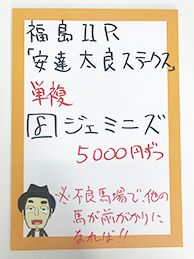 福島11R
「安達太良ステークス」
単複
8 ジェミニズ
5000円ずつ
※不良馬場で、他の
馬が前がかりに
なれば!!